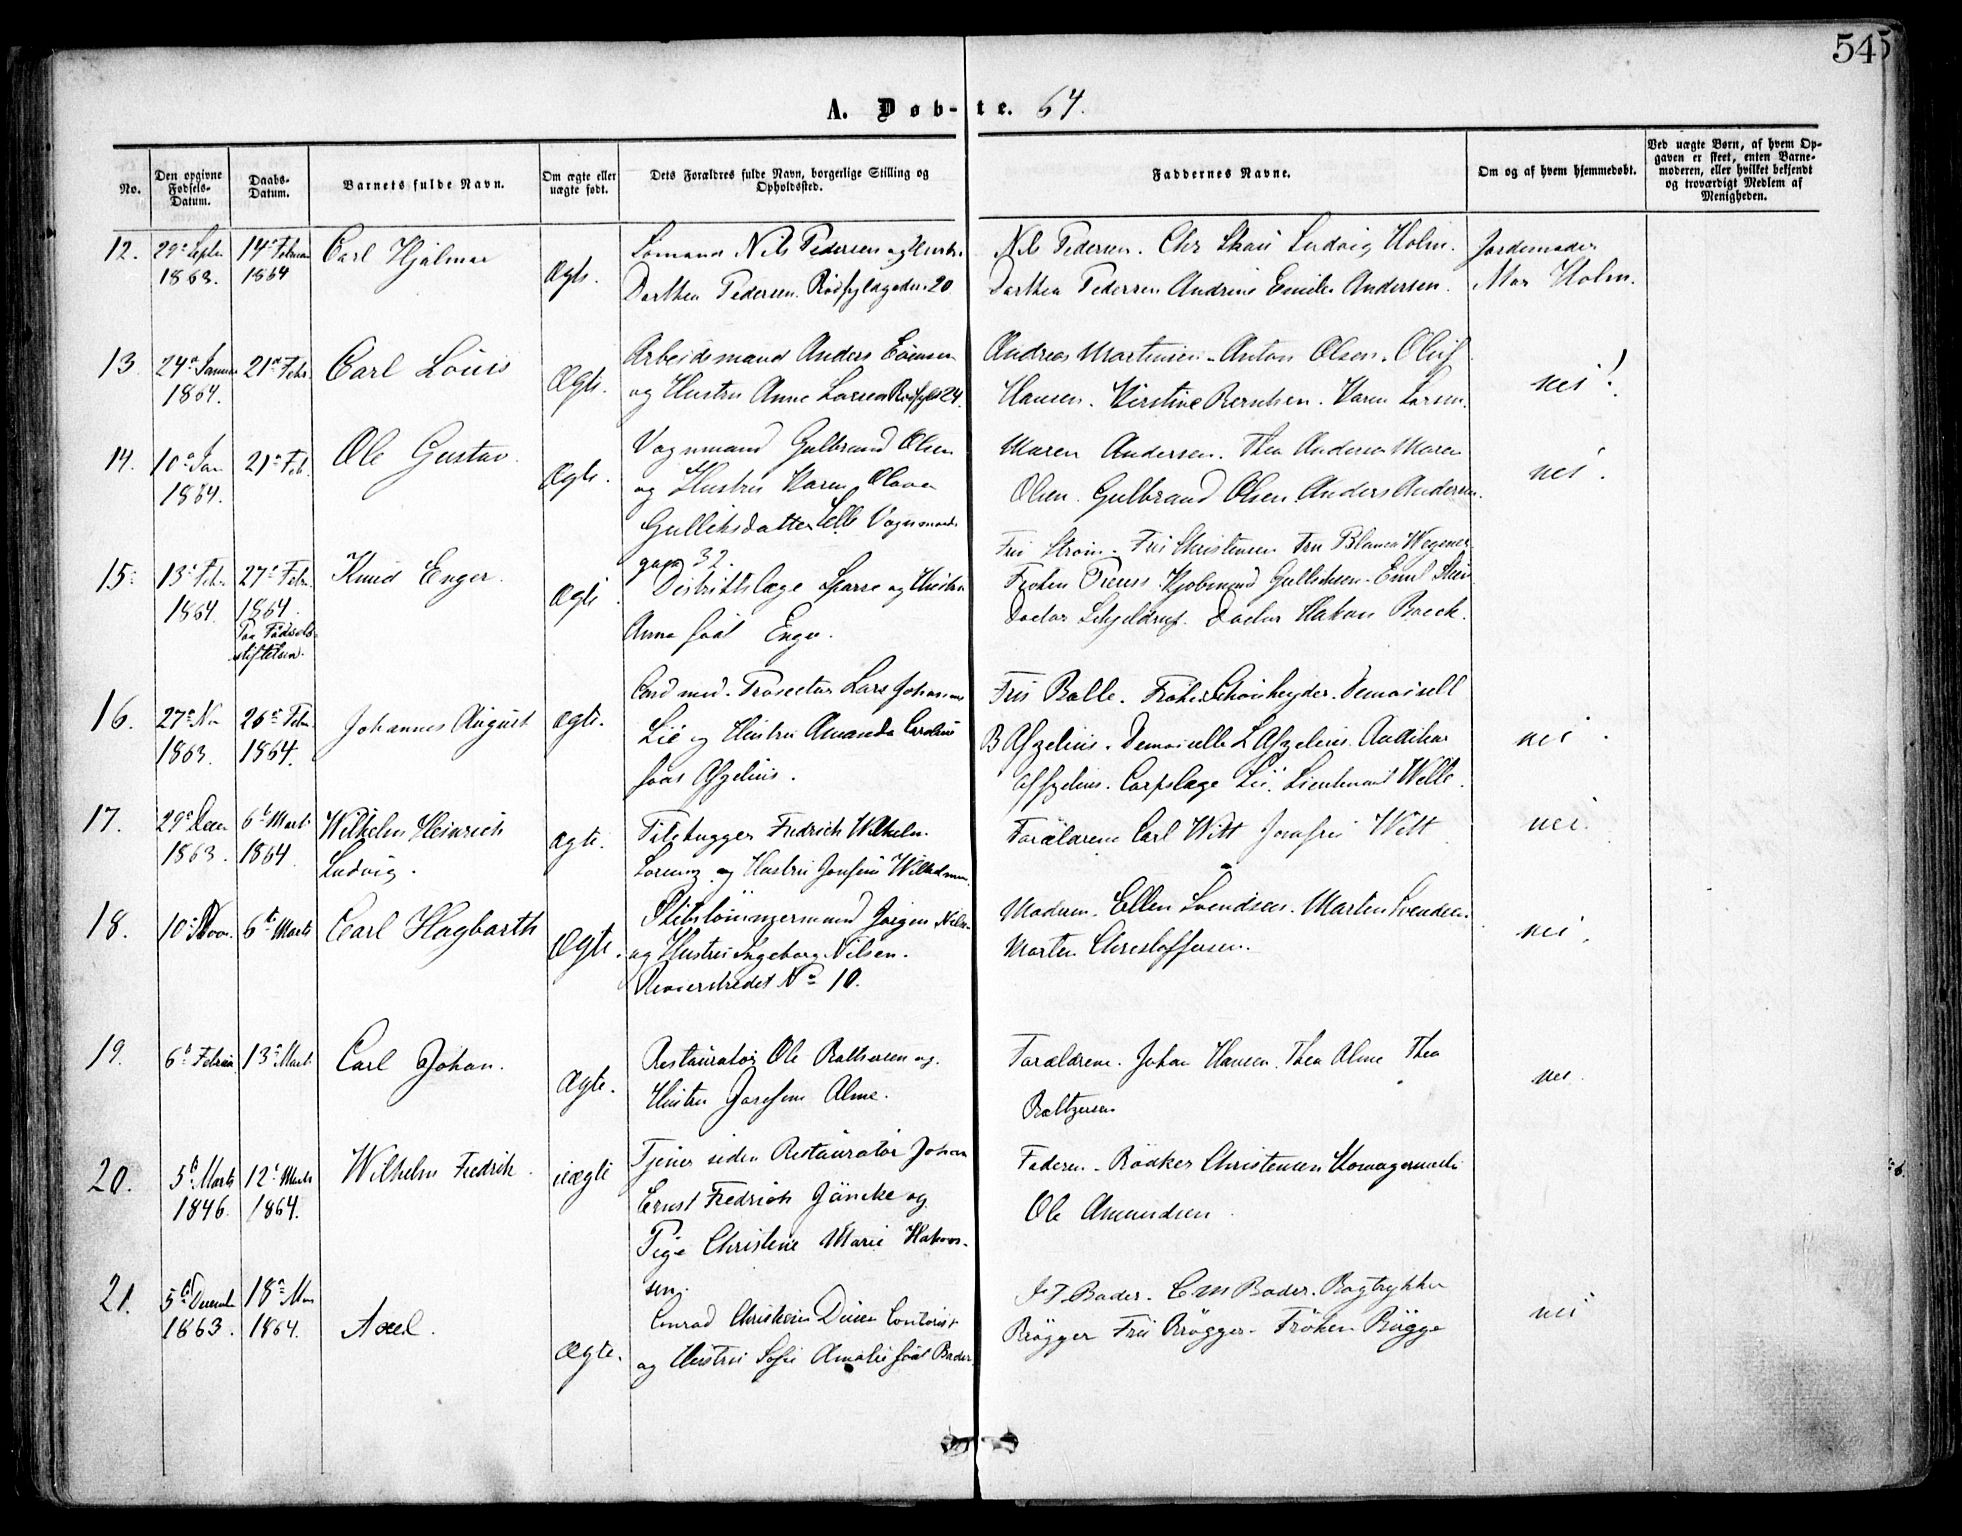 545
A. Døb-te. 64.
No.
Den opgivne Fødsels-Datum.
Daabs-Datum.
Barnets fulde Navn.
Om ægte eller uægte født.
Dets Forældres fulde Navn, borgerlige Stilling og Opholdssted.
Faddernes Navne.
Om og af hvem hjemmedøbt.
Ved uægte Børn, af hvem Opgaven er skeet, enten Barnemoderen, eller hvilket bekjendt og troværdigt Medlem af Menigheden.
12. 29de Septbr 14de Februar Carl Hjalmar Sømand Nils Pedersen og Hustru Nils Pedersen. Chr Skau Ludvig Holm. Jordemoder
1863. 1864 Ægte. Dorthea Pedersen. Rødfyldgaden 20 Dorthea Pedersen Andrine Emilie Andersen. Mor Holm.
13 24de Januar 21de Febr. Carl Louis Arbeidsmand Anders Andreas Martinsen. Anton Olsen. Oluf
1864. Ægte. og Hustru Anne Larsen Rødfyldg 24. Hansen. Kirstine Berntsen. Karen Larsen. nei!
14. 10de Jan 21de Feb. Ole Gustav. Vognmand Gulbrand Olsen Maren Andersen. Thea Andersen Maren
1864. Ægte. og Hustru Karen Olava Olsen. Gulbrand Olsen Anders Andersen. nei.
Gulliksdatter Lille Vognmands
gaden 32. Fru Strøm. Fru Christensen Fru Blanca Wegener
15 13de Feb. 27de Febr. Knud Enger. Distriktslæge Sparre og Hustru Frøken Preuss. Kjøbmand Gulliksen. Emil Stein
1864 1864. Ægte. Anna født Enger. Doctor Schjeldrup. Doctor Hakon Boeck.
Paa Fødsels-
stiftelsen.
16. 27de No 26de Febr Johannes August ægte. Cand med. Prosector Lars Johannes Fru Balle. Frøken Schönheyder. Demoiselle
1863. 1864. Lie og Hustru Amanda Caroline B Afzelius. Demoiselle L Afzelius. Auditør nei.
født Afzelius. Afzelius. Corpslæge Lie. Lieutenant Welle.
17. 29de Decm 6te Marts Wilhelm Heinrich ægte. Filehugger Fredrich Wilhelm Forældrene Carl Witt Jomfru Witt nei.
1863. 1864. Ludvig. Lorenz og Hustru
18. 10de Nov. 6te Marts Carl Hagbarth Jørgen Nilsen Moderen. Ellen Svendsen. Martin Svendsen.
Ægte. og Hustru Ingeborg Nilsen. Morten Christoffersen. nei.
Revierstredet No 10.
19. 6te Februar 13de Marts Carl Johan. Restauratør Ole Baltzersen og. Forældrene. Johan Hansen. Thea Alme Thea
Ægte. Hustru Josefine Alme. Baltzersen nei.
20. 5te Marts 12te Marts Wilhelm Fredrik. uægte Tjener siden Restauratør Johan Faderen. Bødker Christensen
1846. 1864. Ernst Fredrich Jäncke og Ole Amundsen
Pige Christine Marie Hakon-
sen.
21. 5te December 18de Mar Axel. Conrad Christian Due Contorist J F. Bader. E M Bader. Bogtrykker
1863. 1864. Ægte. og Hustru Sofie Amalie født Bader. Brøgger Fru Brøgger. Frøken Bugge nei